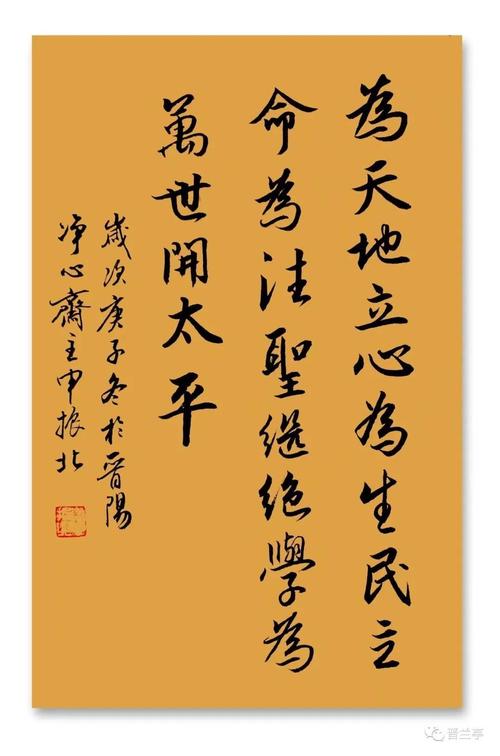 為天地立心為生民立
命為往聖继绝學為
萬世開太平
歲次庚子冬於晋陽
净心齋主申振北
晋兰亭